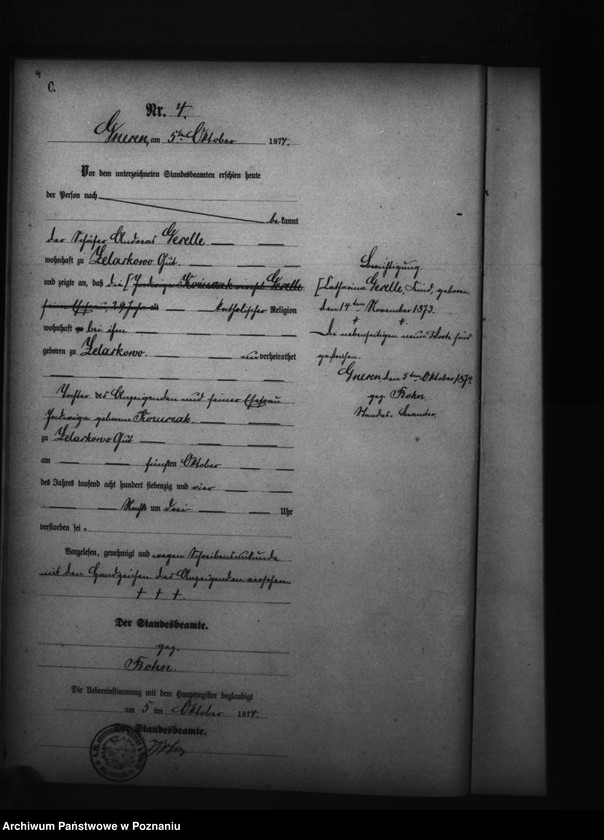 4
C.
Nr. 4.
Gneren, am 5ten Oktober 1874.
Vor dem unterzeichneten Standesbeamten erschien heute
der Person nach
bekannt
der Schäfer Andreas Gerelle
wohnhaft zu Zelarkowo Gut.
und zeigte an, daß die [ Jadwiga Kozurcak Gerelle
Ehefrau, 29 Jahr alt katholischer Religion
wohnhaft bei ihm
geboren zu Zelarkowo. unverheirathet
Tochter des Anzeigenden und seiner Ehefrau
Jadwiga geborene Kozurcak
zu Zelarkowo Gut
am fünften Oktober
des Jahrs tausend acht hundert siebenzig und vier
Nachts um drei Uhr
verstorben sei.
Vorgelesen, genehmigt und wegen Schreibensunkunde
mit den Handzeichen des Anzeigenden versehen.
† † †.
Der Standesbeamte.
gez.
Die Uebereinstimmung mit dem Hauptregister beglaubigt
am 5 ten Oktober 1874.
Der Standesbeamte.
Berichtigung.
[Catharina Gerelle, Kind, geboren
den 14ten November 1873.
† †.
Die nebenseitigen neun Worte sind
gestrichen.
Gneren, den 5ten Oktober 1874
gez.
Standes-Beamter.
Archiwum Państwowe w Poznaniu